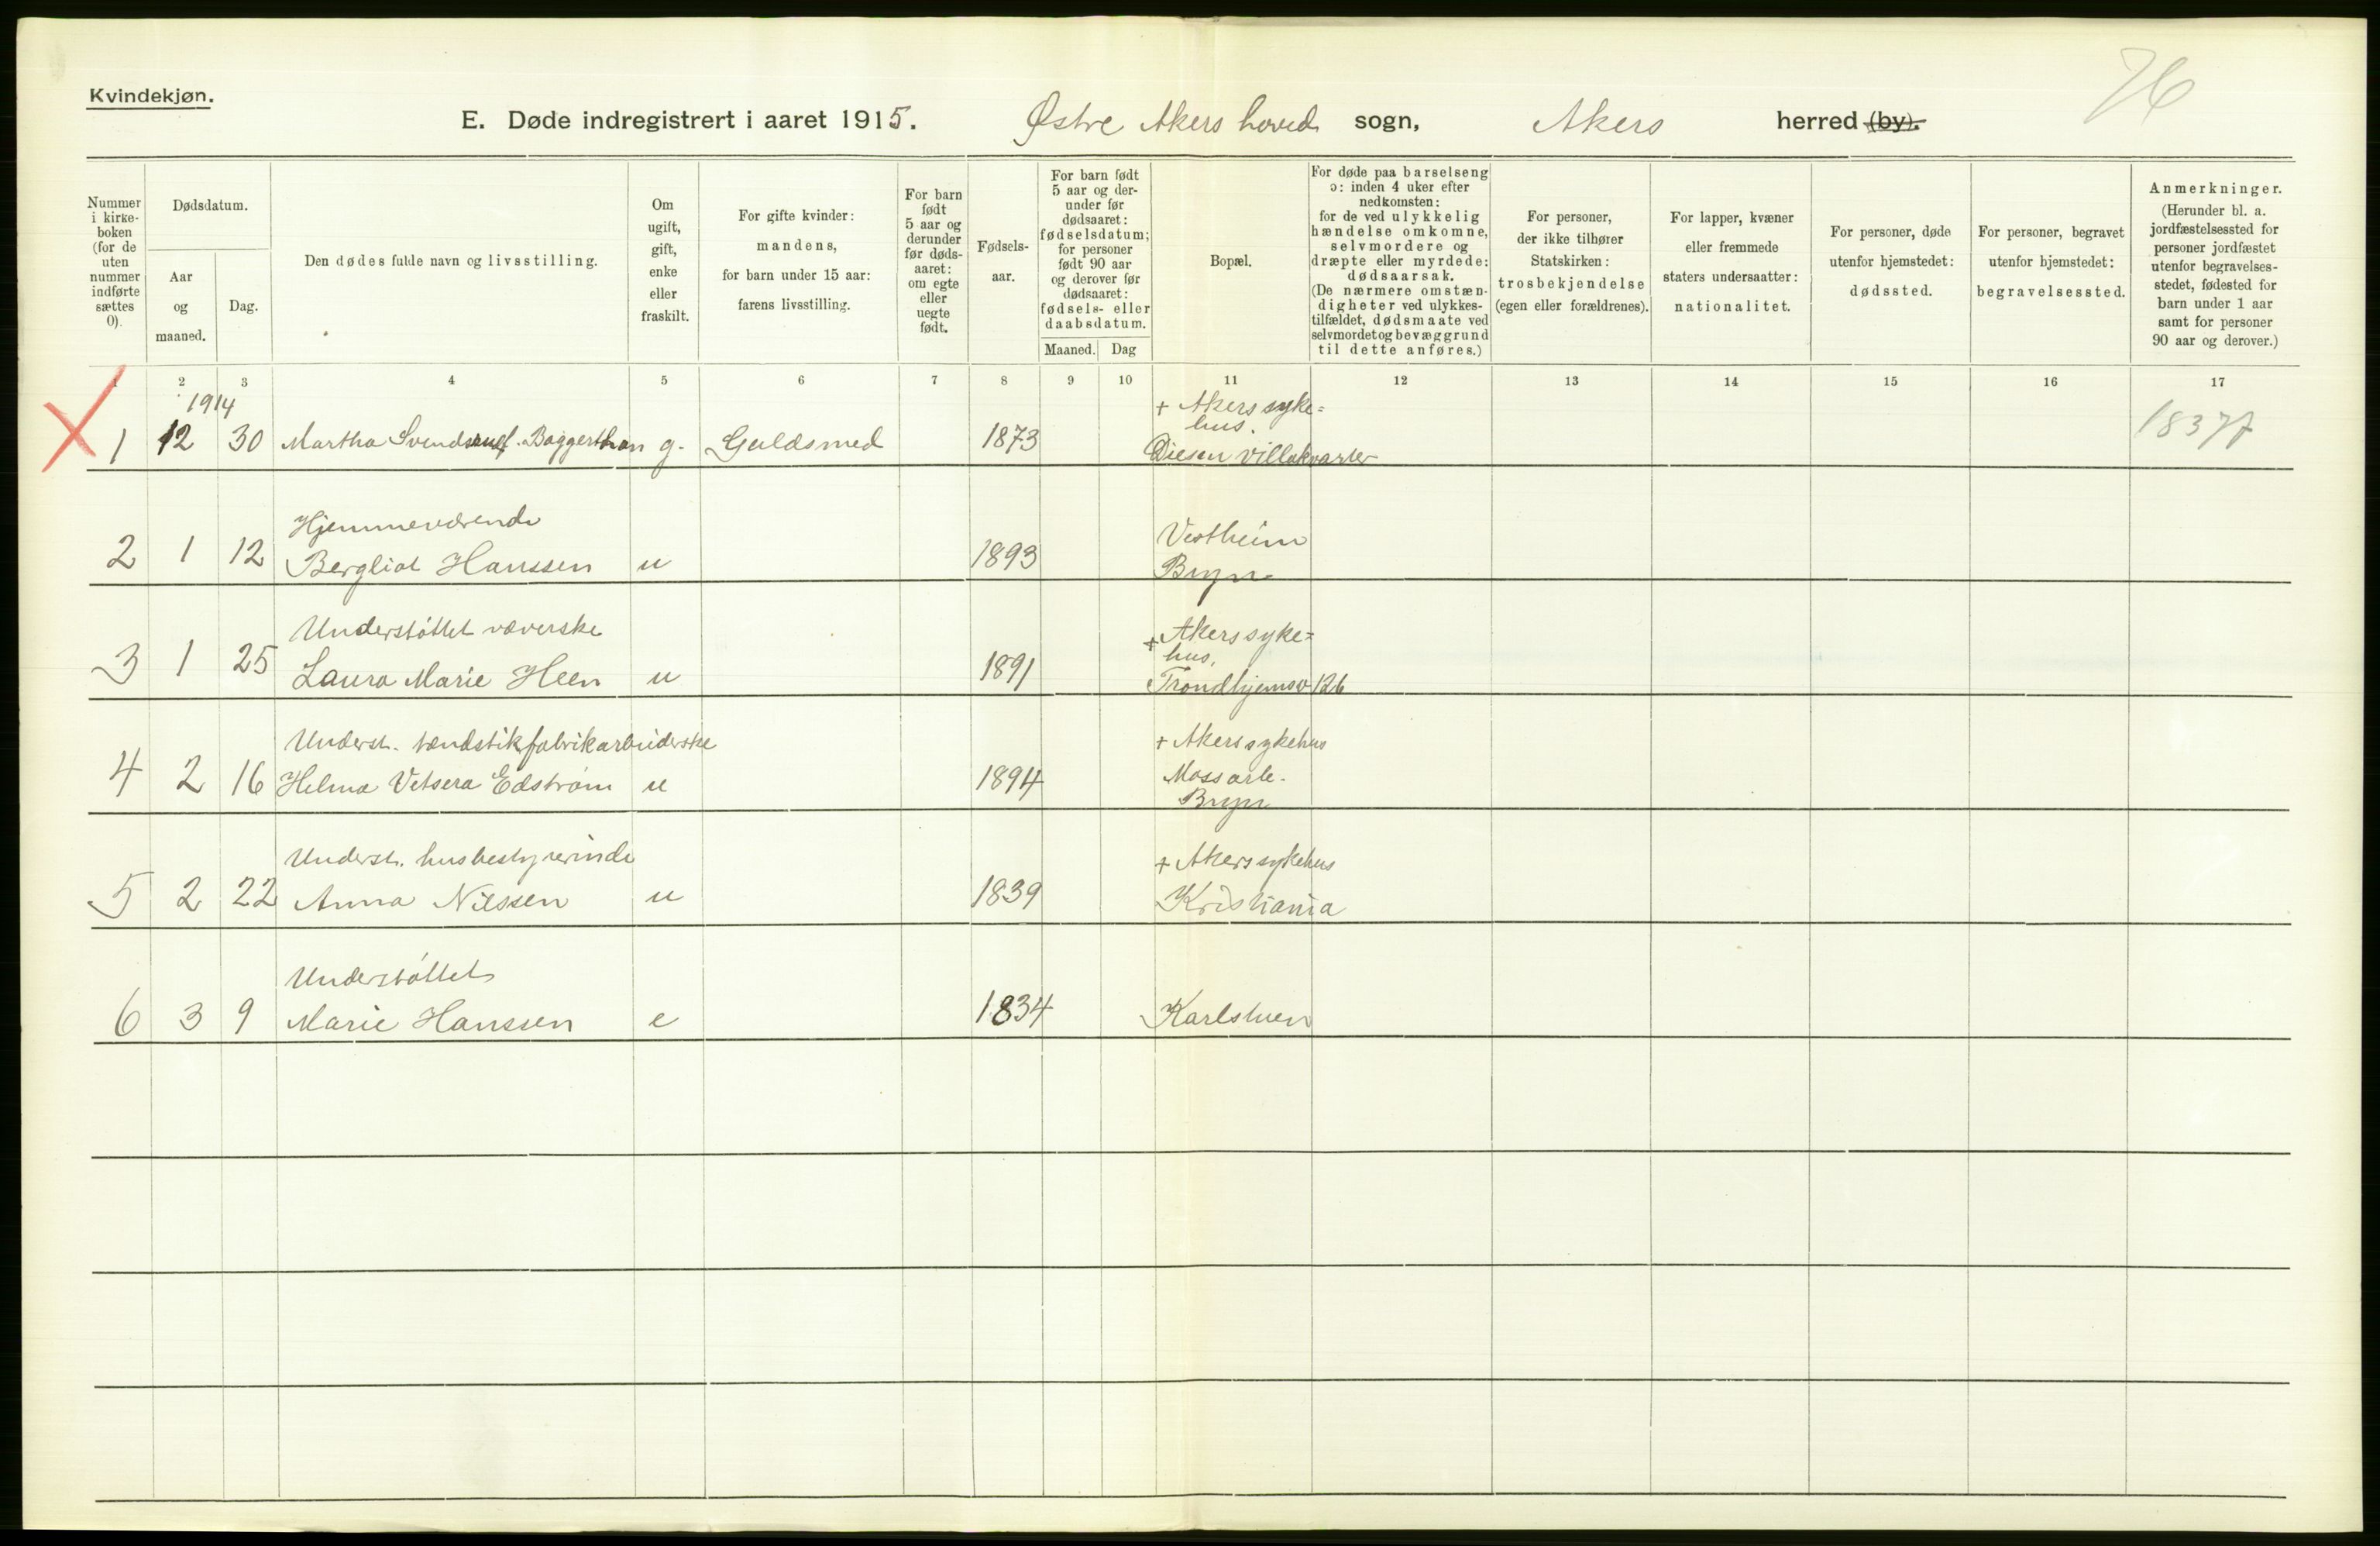 Kvindekjøn.
76
E. Døde indregistrert i aaret 1915. Østre Akers hoved sogn, Akers herred (by).
Nummer i kirke-boken (for de uten nummer indførte sættes 0).
Dødsdatum.
Aar og maaned.
Dag.
Den dødes fulde navn og livsstilling.
Om ugift, gift, enke eller fraskilt.
For gifte kvinder: mandens, for barn under 15 aar: farens livsstilling.
For barn født 5 aar og derunder før døds-aaret: om egte eller uegte født.
Fødsels-aar.
For barn født 5 aar og der-under før dødsaaret: fødselsdatum; for personer født 90 aar og derover før dødsaaret: fødsels- eller daabsdatum.
Maaned. Dag
Bopæl.
For døde paa barselseng ɔ: inden 4 uker efter nedkomsten: for de ved ulykkelig hændelse omkomne, selvmordere og dræpte eller myrdede: dødsaarsak. (De nærmere omstæn-digheter ved ulykkes-tilfældet, dødsmaate ved selvmordet og bevæggrund til dette anføres.)
For personer, der ikke tilhører Statskirken: trosbekjendelse (egen eller forældrenes).
For lapper, kvæner eller fremmede staters undersaatter: nationalitet.
For personer, døde utenfor hjemstedet: dødssted.
For personer, begravet utenfor hjemstedet: begravelsessted.
Anmerkninger. (Herunder bl. a. jordfæstelsessted for personer jordfæstet utenfor begravelses-stedet, fødested for barn under 1 aar samt for personer 90 aar og derover.)
1 2 3 4 5 6 7 8 9 10 11 12 13 14 15 16 17
1914
+ Akers syke=
hus.
1 12 30 Martha g. Guldsmed 1873 Diesen villakvarter 1837
Hjemmeværende Vestheim
2 1 12 Bergliot Hanssen u 1893 Bryn
Understøttet væverske + Akers syke=
hus.
3 1 25 Laura Marie Heen u 1891 Trondhjemsv 126
Underst. tændstikfabrikarbeiderske + Akers sykehus
4 2 16 Helma Vetsera Edstrøm u 1894
Bryn
Underst. husbestyrerinde + Akers sykehus
5 2 22 Anna Nilssen u 1839 Kristiania
Understøttet
6 3 9 Marie Hanssen e 1834